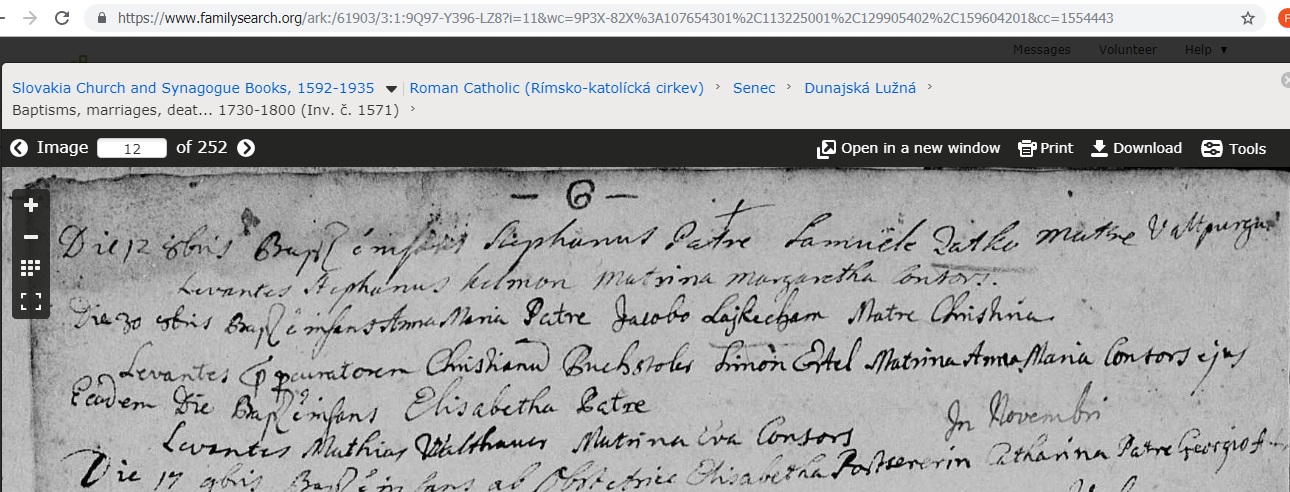 https://www.familysearch.org/ark:/61903/3:1:9Q97-Y396-LZ8?i=11&wc=9P3X-82X%3A107654301%2C113225001%2C129905402%2C159604201&cc=1554443
Messages Volunteer Help
Slovakia Church and Synagogue Books, 1592-1935 Roman Catholic (Rímsko-katolícká cirkev) › Senec › Dunajská Lužná ›
Baptisms, marriages, deat... 1730-1800 (Inv. č. 1571) ›
Image 12 of 252 Open in a new window Print Download Tools
- 6 -
Die 12 8bris Bapt ē infans Stephanus Patre Samuele Zatko Matre
Levantes Stephanus kelmon Matrina Margaretha Consors.
Die 30 8bris Bapt ē infans Anna Maria Patre Jacobo Matre Christina
Levantes Christianū Simon Ertel Matrina Anna Maria Consors ejus
Eodem Die Bapt ē infans Elisabetha Patre
In Novembri
Levantes Mathias Walthauer Matrina Eva Consors
Die 17 9bris Bapt ē infans ab Obstetrice Elisabetha Catharina Patre Georgio